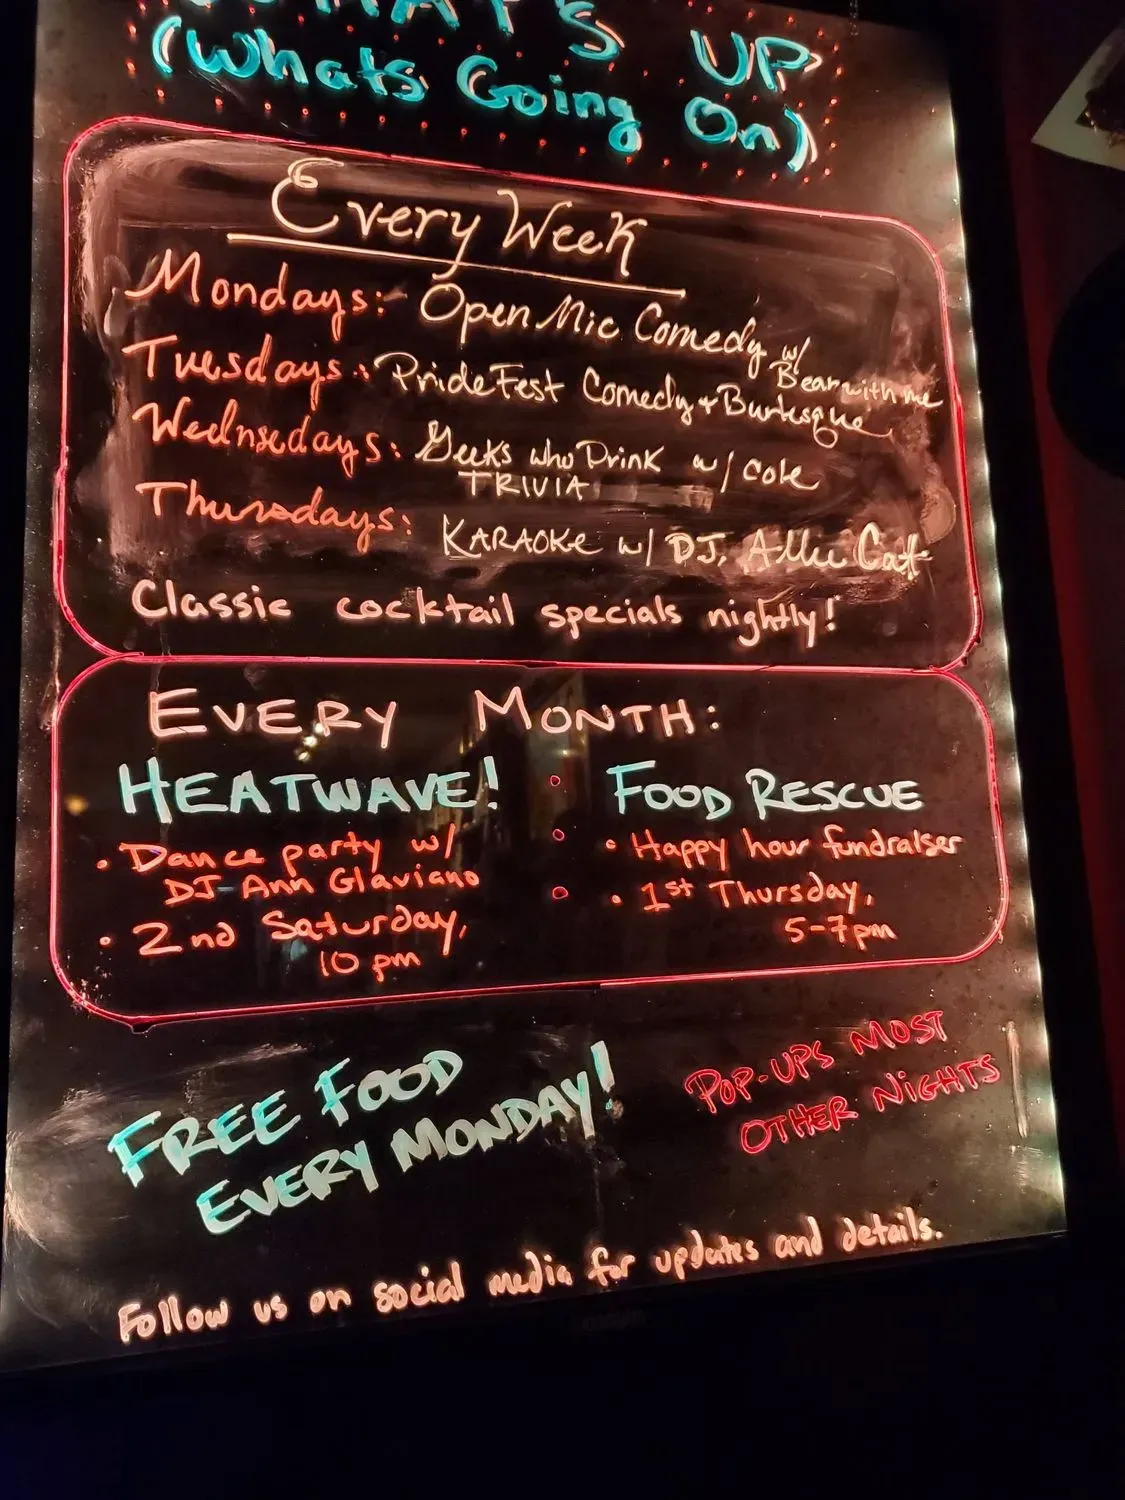 WHAT'S UP
(Whats Going On)
Every Week
Mondays: Open Mic Comedy w/
Bear with me
Tuesdays: PrideFest Comedy + Burlesque
Wednesdays: Geeks who Drink w/ Cole
TRIVIA
Thursdays: KARAOKE w/ DJ. Alli Cat
Classic cocktail specials nightly!
EVERY MONTH:
HEATWAVE!
• Dance party w/
DJ Ann Glaviano
• 2nd Saturday,
10 pm
FOOD RESCUE
• Happy hour fundraiser
• 1st Thursday,
5-7pm
FREE FOOD
EVERY MONDAY!
POP-UPS MOST
OTHER NIGHTS
Follow us on social media for updates and details.